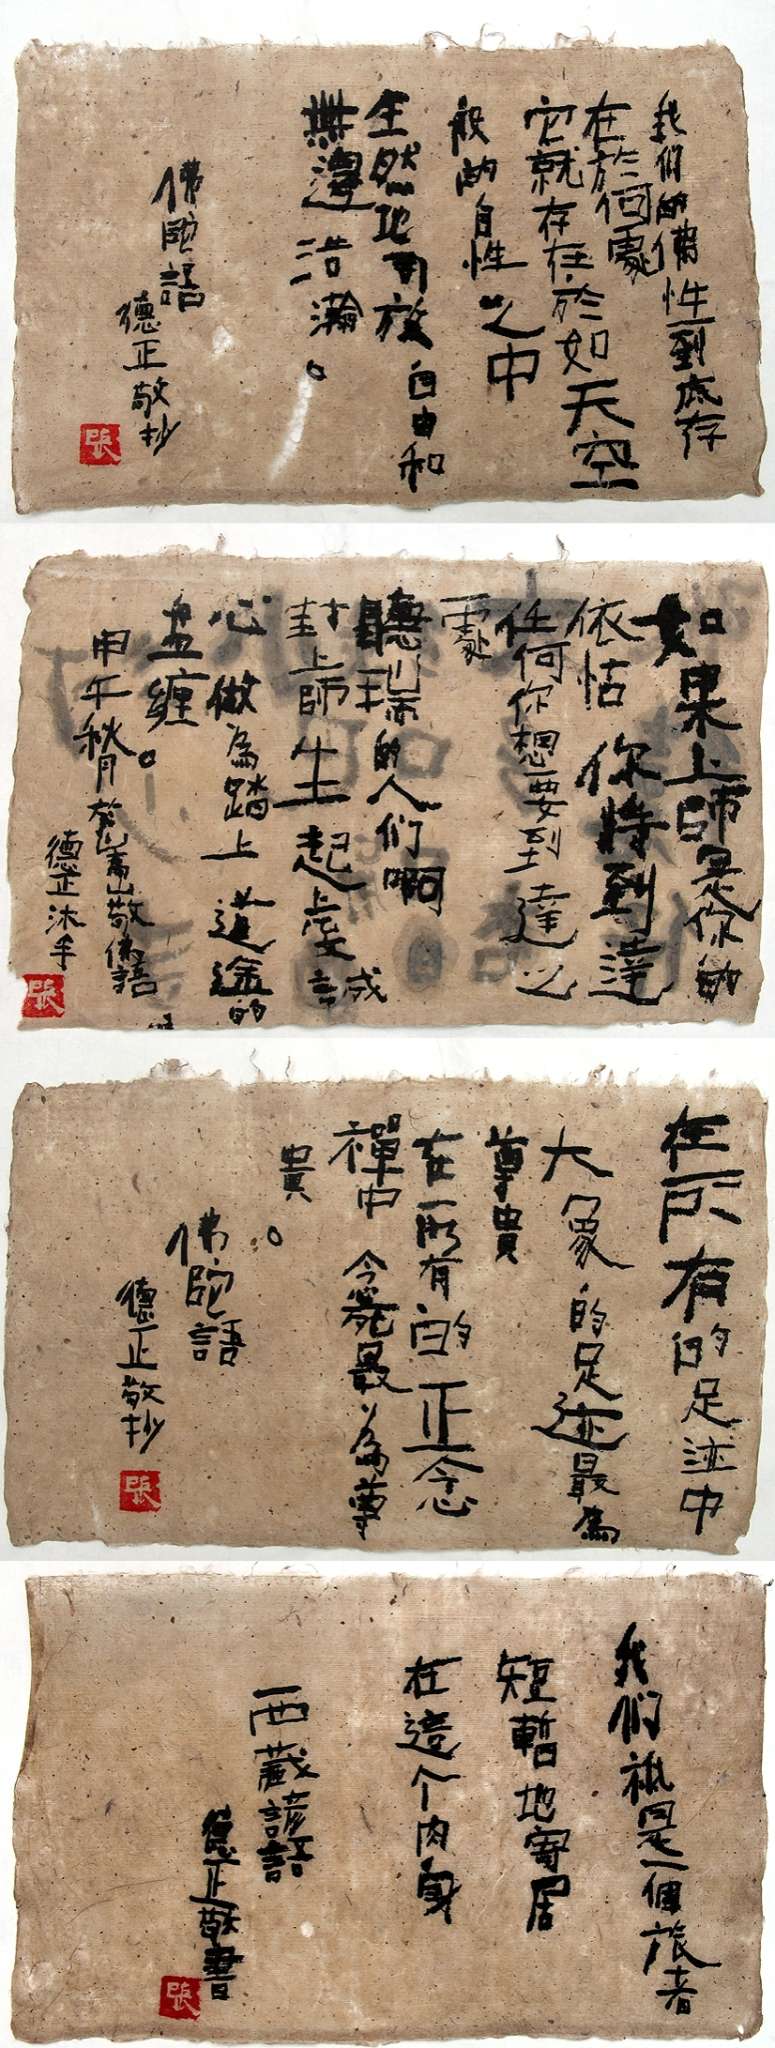 我们的佛性到底存
在於何處
它就存在於如天空
般的自性之中
全然地開放自由和
無邊浩瀚。
佛陀語
德正敬抄
張
如果上師是你的
依怙你将到達
任何你想要到達之
處
聽瑞的人们啊
封上師生起虔誠
心做為踏上道途的
盘纏。
甲午秋月於嵩山敬佛語
德正沐手
張
在所有的足迹中
大象的足迹最為
尊貴
在所有的正念
禪中念死最為尊
貴。
佛陀語
德正敬抄
張
我们祇是一個旅者
短暫地寄居
在這个肉身
西藏諺語
德正敬書
張